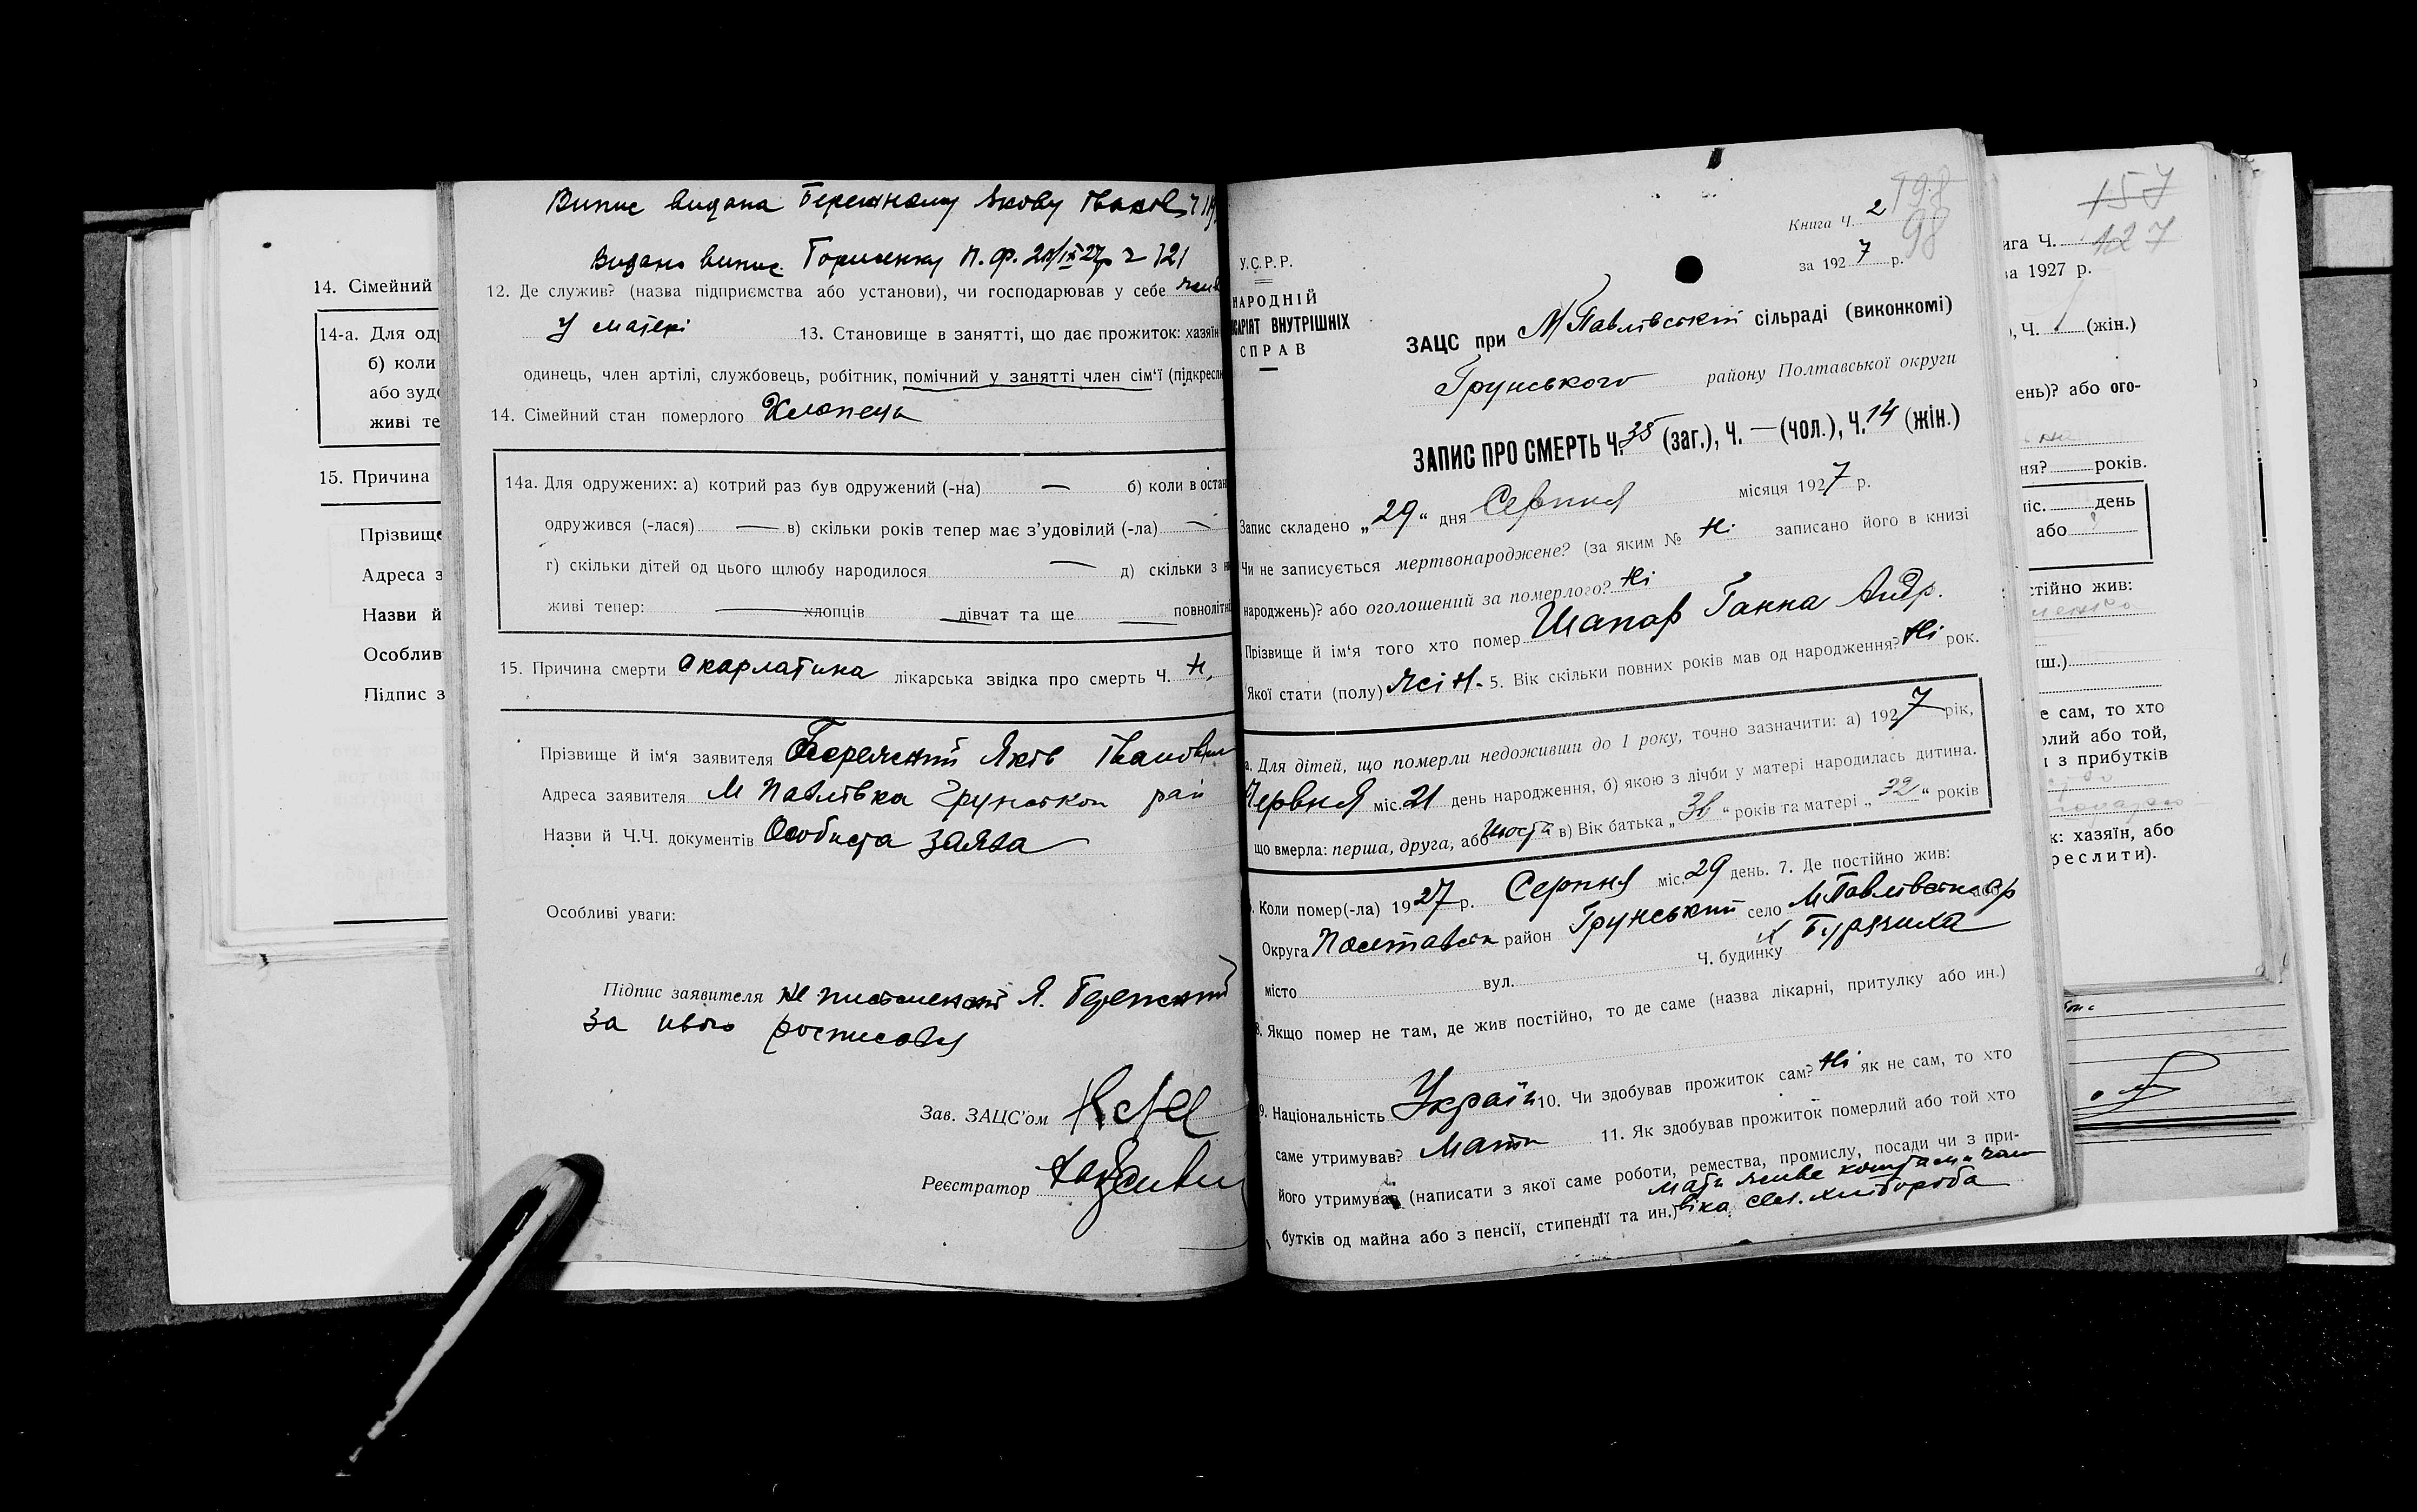 14. Сімейний
14-а. Для од
б) коли
або зуд
живі те
15. Причина
Прізвище
Адреса з
Назви й
Особлив
Підпис з
Випис видана Бережному Якову
Видано випис П. Ф.
12. Де служив? (назва підприємства або установи), чи господарював у себе
У матері 13. Становище в занятті, що дає прожиток: хазяїн
одинець, член артілі, службовець, робітник, помічний у занятті член сім‘ї (підкресл
14. Сімейний стан померлого Хлопець
14а. Для одружених: а) котрий раз був одружений (-на) — б) коли в остан
одружився (-лася) — в) скільки років тепер має з’удовілий (-ла) —
г) скільки дітей од цього шлюбу народилося — д) скільки з н
живі тепер: — хлопців — дівчат та ще — повнолітні
15. Причина смерти скарлатина лікарська звідка про смерть Ч. Н.
Прізвище й ім‘я заявителя Бережний Яків Іванович
Адреса заявителя М Павлівка Грунськ рай
Назви й Ч.Ч. документів Особиста заява
Особливі уваги:
Підпис заявителя не письменний Я. Бережний
за нього росписався
Зав. ЗАЦС’ом
Реєстратор
198
98
Книга Ч. 2
за 1927 р.
У.С.Р.Р.
НАРОДНІЙ
САРІЯТ ВНУТРІШНІХ
СПРАВ
ЗАЦС при М Павлівській сільраді (виконкомі)
Грунського району Полтавської округи
ЗАПИС ПРО СМЕРТЬ Ч. 35 (заг.), Ч. — (чол.), Ч. 14 (жін.)
Запис складено „29“ дня Серпня місяця 1927 р.
Чи не записується мертвонароджене? (за яким № Н. записано його в книзі
народжень)? або оголошений за померлого? Ні
Прізвище й ім‘я того хто помер Шапар Ганна Андр.
Якої стати (полу) Жін. 5. Вік скільки повних років мав од народження? Ні рок.
а. Для дітей, що померли недоживши до 1 року, точно зазначити: а) 1927 рік,
Червня міс. 21 день народження, б) якою з лічби у матері народилась дитина.
що вмерла: перша, друга, або Шоста в) Вік батька „ “ років та матері „32“ років
Коли помер(-ла) 1927 р. Серпня міс. 29 день. 7. Де постійно жив:
Округа Полтавськ район Грунський село М Павлівськ
місто вул. Ч. будинку
8. Якщо помер не там, де жив постійно, то де саме (назва лікарні, притулку або ин.)
9. Національність Україн 10. Чи здобував прожиток сам? Ні як не сам, то хто
саме утримував? Мати 11. Як здобував прожиток померлий або той хто
його утримував (написати з якої саме роботи, ремества, промислу, посади чи з при-
мати живе коштами чоло
бутків од майна або з пенсії, стипендії та ин.) віка сел. хлібороба
157
127
ига Ч.
за 1927 р.
), Ч. (жін.)
ень)? або ого-
ня? років.
міс. день
або
стійно жив:
иш.)
е сам, то хто
рлий або той,
и з прибутків
к: хазяїн, або
реслити).